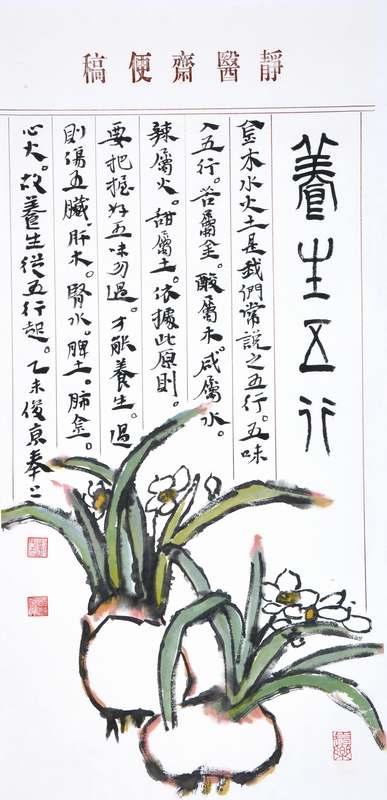 靜醫齋便稿
養生五行
金木水火土是我們常說之五行。五味
入五行。苦屬金。酸屬木。咸屬水。
辣屬火。甜屬土。依據此原則。
要把握好五味勿過。才能養生。過
則傷五臟。肝木。腎水。脾土。肺金。
心火。故養生從五行起。乙未俊京奉